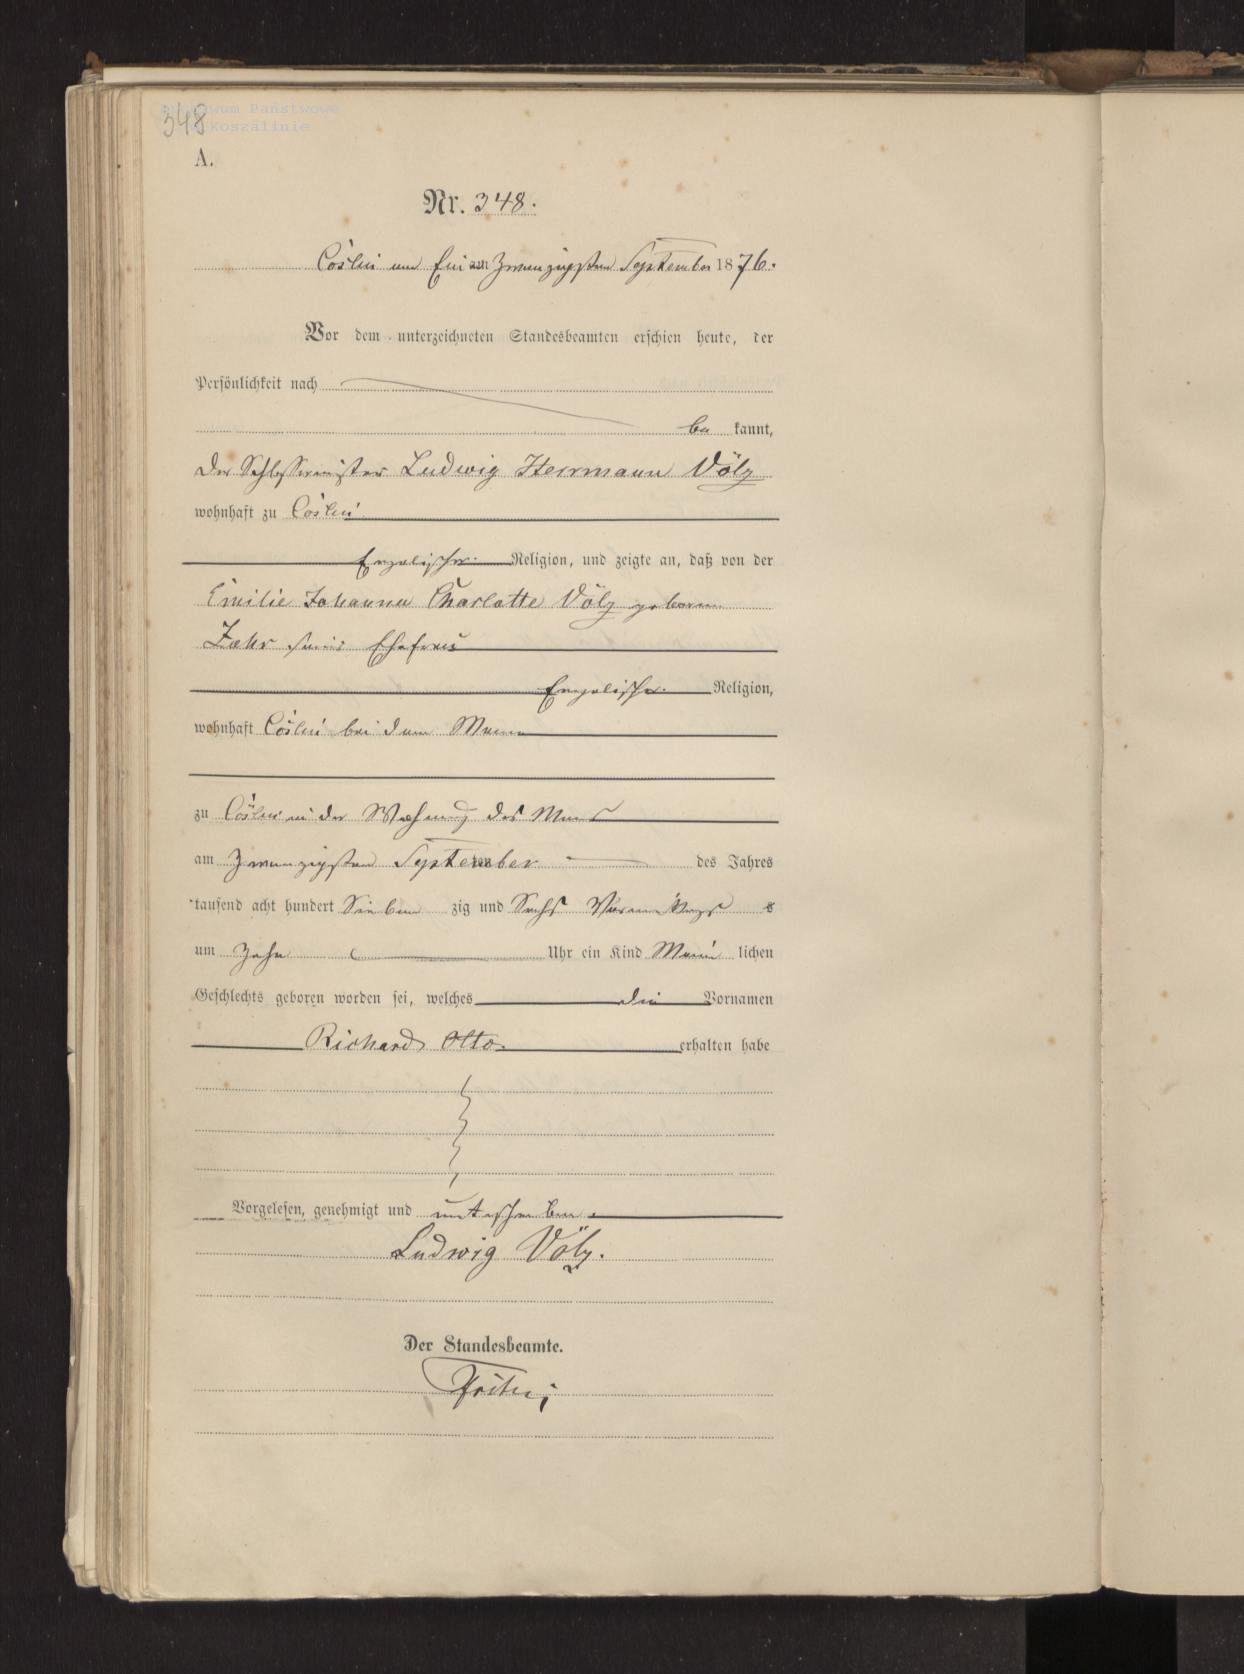 Archiwum Państwowe
w Koszalinie
348
A.
Nr. 348.
Cöslin am Ein und Zwanzigsten September 1876.
Vor dem unterzeichneten Standesbeamten erschien heute, der
Persönlichkeit nach
be kannt,
der Schlossermeister Ludwig Herrmann Völz
wohnhaft zu Cöslin
Evgelischer Religion, und zeigte an, daß von der
Emilie Johanna Charlotte Völz geborenen
seiner Ehefrau
Evgelischer Religion,
wohnhaft Cöslin bei dem Mann
zu Cöslin in der Wohnung des
am Zwanzigsten September des Jahres
tausend acht hundert Sieben zig und Sechs Vormittags
um Zehn Uhr ein Kind Männ lichen
Geschlechts geboren worden sei, welches die Vornamen
Richard Otto. erhalten habe
Vorgelesen, genehmigt und unterschrieben.
Ludwig Völz.
Der Standesbeamte.